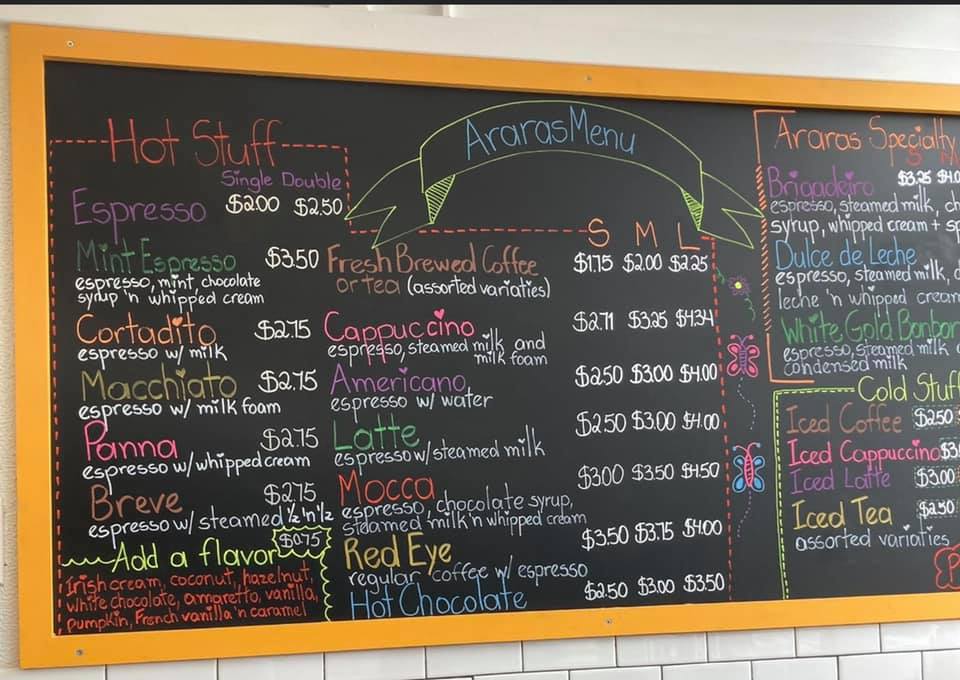 Hot Stuff
Single Double
Espresso $2.00 $2.50
Mint Espresso $3.50
espresso, mint, chocolate
syrup 'n whipped cream
Cortadito $2.75
espresso w/ milk
Macchiato $2.75
espresso w/ milk foam
Panna $2.75
espresso w/ whipped cream
Breve $2.75
espresso w/ steamed ½ 'n ½
Add a flavor $0.75
Irish cream, coconut, hazelnut,
white chocolate, amaretto, vanilla,
pumpkin, French vanilla 'n caramel
Araras Menu
S M L
Fresh Brewed Coffee $1.75 $2.00 $2.25
or tea (assorted variaties)
Cappuccino $2.71 $3.25 $4.34
espresso, steamed milk and
milk foam
Americano $2.50 $3.00 $4.00
espresso w/ water
Latte $2.50 $3.00 $4.00
espresso w/ steamed milk
Mocca $3.00 $3.50 $4.50
espresso, chocolate syrup,
steamed milk 'n whipped cream
Red Eye $3.50 $3.75 $4.00
regular coffee w/ espresso
Hot Chocolate $2.50 $3.00 $3.50
Araras Specialty
S
Brigadeiro $3.25
espresso, steamed milk,
syrup, whipped cream +
Dulce de Leche
espresso, steamed milk,
leche 'n whipped cream
White Gold Bonbon
espresso, steamed milk
condensed milk
Cold Stuff
Iced Coffee $2.50
Iced Cappuccino
Iced Latte $3.00
Iced Tea $2.50
assorted variaties